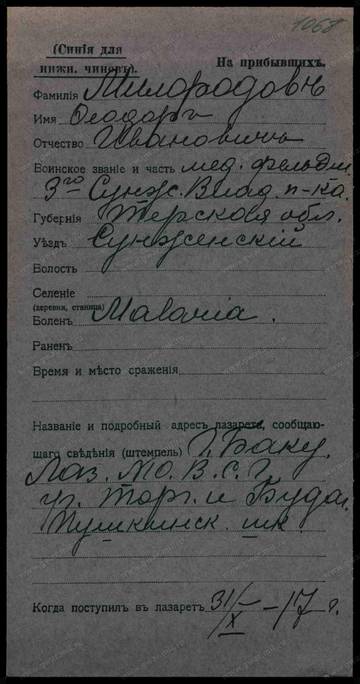 1068
(Синія для нижн. чиновъ).
На прибывшихъ.
Фамилія Милорадовъ
Имя Ѳеодоръ
Отчество Ивановичъ
Воинское званіе и часть мед. фельдш.
3го Сунж. Влад. п-ка.
Губернія Терская обл.
Уѣздъ Сунженскій
Волость
Селеніе
(деревня, станица)
Боленъ Malaria.
Раненъ
Время и мѣсто сраженія
Названіе и подробный адресъ лазарета, сообщаю-
щаго свѣдѣнія (штемпель) г. Баку.
Лаз. В. С. Г.
уг. Торг. и
Пушкинск. шк.
Когда поступилъ въ лазаретъ 31/X - 17 г.